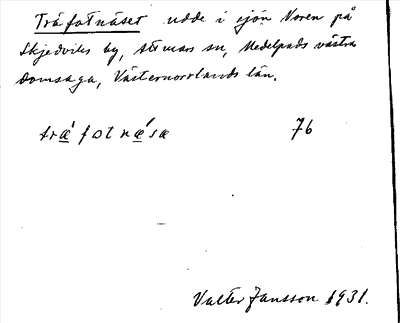 Träfotnäset udde i sjön Noren på
Skjedviks by, Attmars sn, Medelpads västra
domsaga, Västernorrlands län.
træ´fotnæ´sæ 76
Valter Jansson 1931.